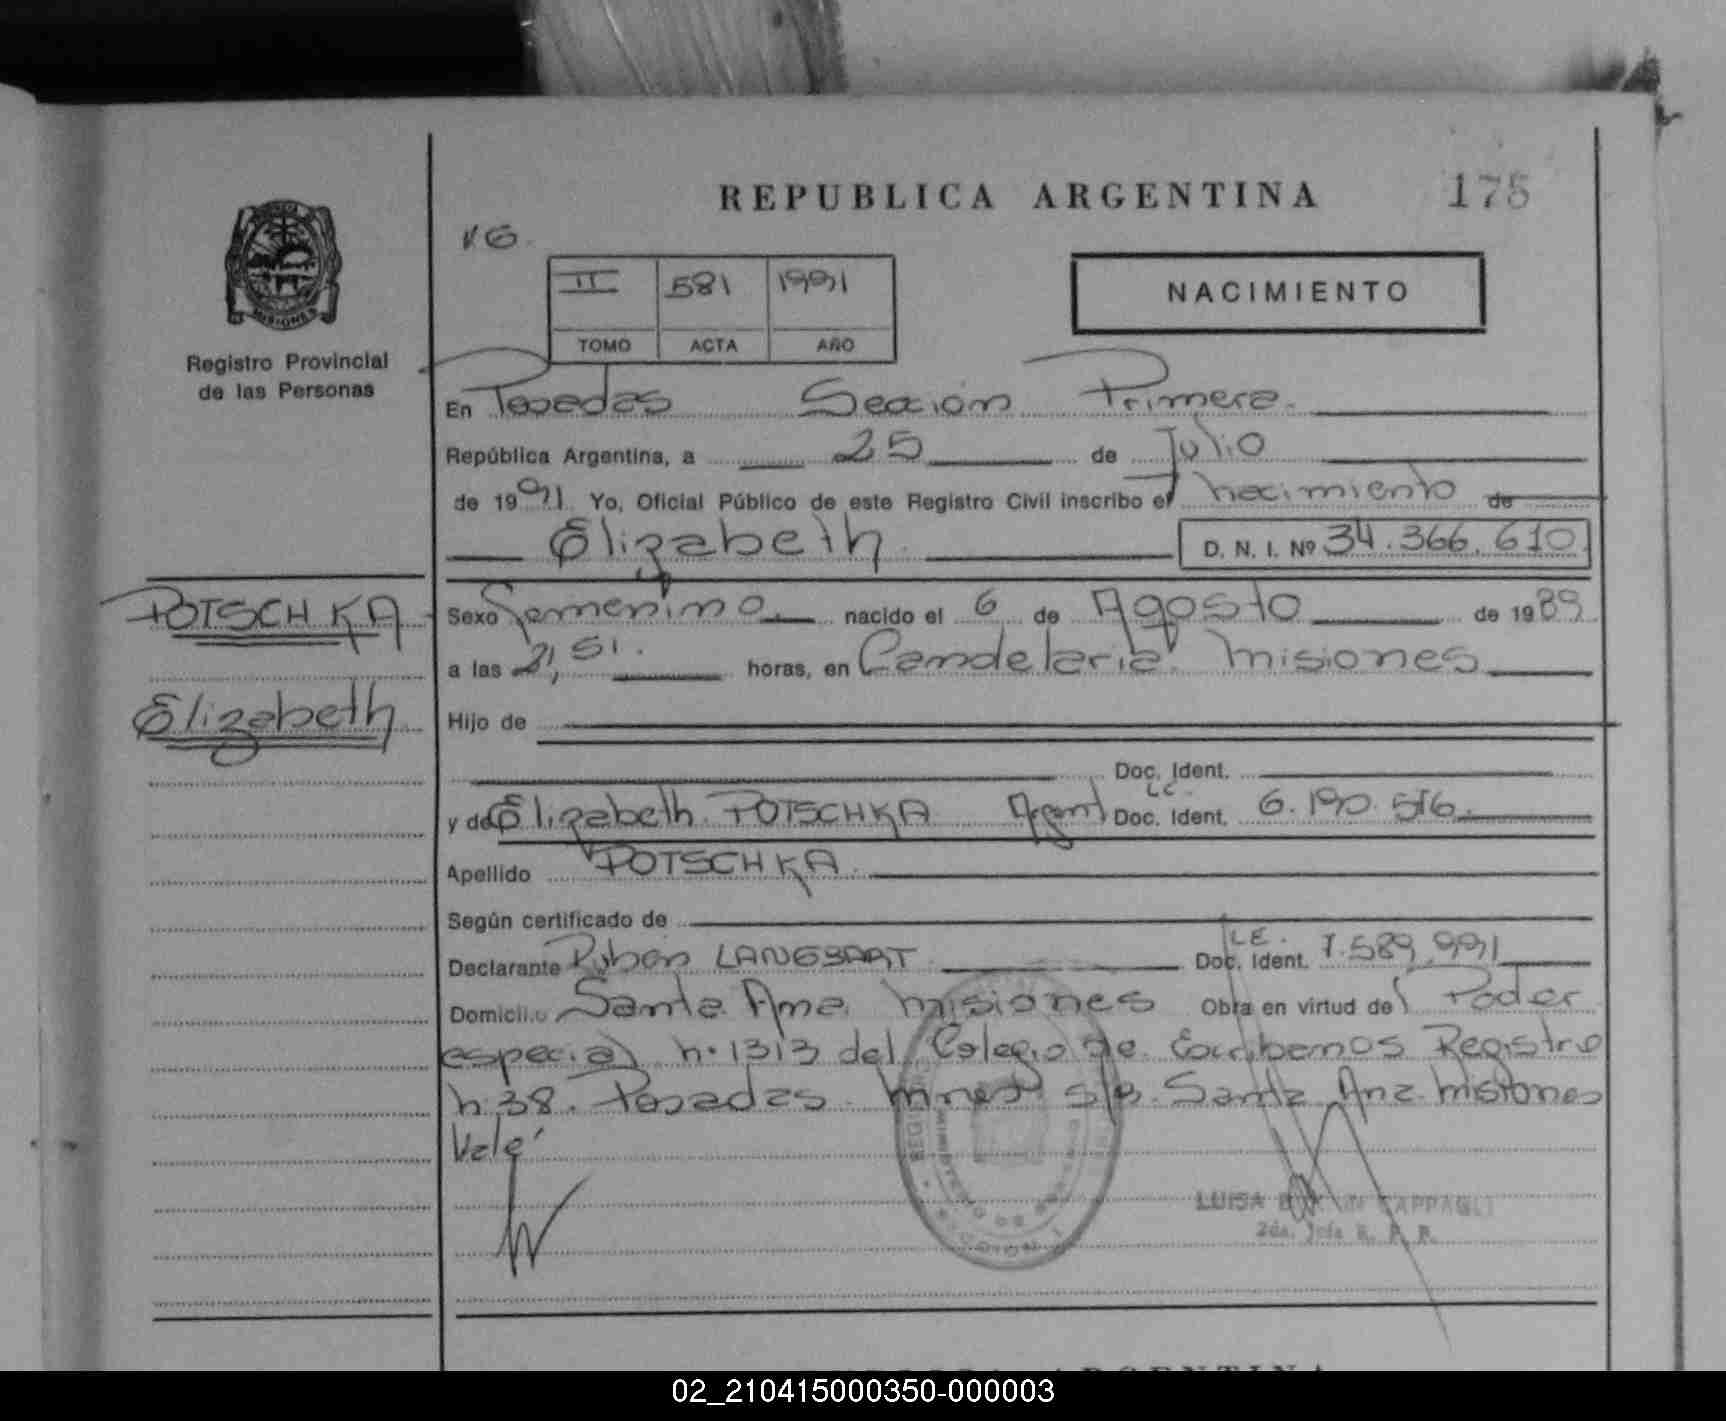 REPUBLICA ARGENTINA 175
MISIONES
Registro Provincial
de las Personas
II 581 1991
TOMO ACTA AÑO
NACIMIENTO
En Posadas Seccion Primera
República Argentina, a 25 de Julio
de 1991 Yo, Oficial Público de este Registro Civil inscribo el nacimiento de
Elizabeth D. N. I. Nº 34.366.610
POTSCHKA
Elizabeth
Sexo Femenino nacido el 6 de Agosto de 1989
a las 21,51. horas, en Candelaria Misiones
Hijo de
Doc. Ident.
y de Elizabeth POTSCHKA Argent Doc. Ident. L.C. 6.190.516
Apellido POTSCHKA
Según certificado de
Declarante Rubén LANGBART Doc. Ident. L.E. 7.589.991
Domicilio Santa Ana Misiones Obra en virtud de Poder
especial n.1313 del Colegio de Escribanos Registro
n.38. Posadas. s/b. Santa Ana Misiones
Vale
LUISA CAPPAGLI
2da. Jefe R. P. P.
REPUBLICA ARGENTINA
02_210415000350-000003